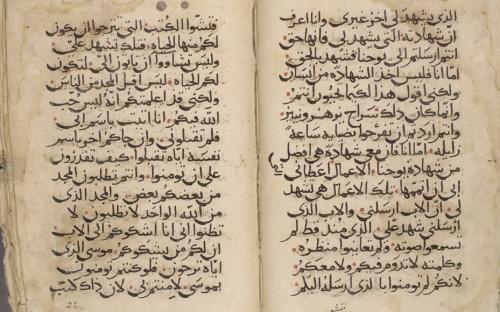 الذي يشهد لي اخر غيري وانا اعرف
ان شهادته التي يشهد لي فانها حق
انتم ارسلتم الى يوحنا فشهد بالحق
اما انا فليس اخذ الشهادة من انسان
ولكني اقول هذا لكيما تحيون انتم
وانما كان ذلك سراج يزهر وينير
وانتم اردتم ان تفرحوا بضيايه ساعة
زايله اما انا فان معي شهادة هي افضل
من شهادة يوحنا الاعمال اعطاني
ابي ان اتمها تلك الاعمال هي تشهد
لي ان الاب ارسلني والاب الذي
ارسلني شهد علي الذي منذ قط لم
تسمعوا صوته ولم تعاينوا منظره
وكلمته لا تدوم فيكم ولا معكم
لانكم لم تومنوا بالذي ارسله اليكم
فتشوا الكتب التي ترجوا ان يكون
لكم منها الحياه فتلك تشهد علي
وليس تشاووا ان ياتون الي لتكون
لكم الحياه وليس اقبل المجد من الناس
ولكني قد اعلمتكم انه ليس حب
الله فيكم انا اتيت باسم ابي
فلم تقبلوني وان جاكم اخر باسم
نفسه اياه تقبلوا كيف تقدرون
على ان تومنوا وانتم تطلبون المجد
من بعضكم بعض والمجد الذي
من الله الواحد لا تطلبون لا
تظنوا اني انا اشكوكم الى الاب
ان لكم من يشكوكم موسى الذي
اياه ترجون فلو كنتم تومنون
بموسى لامنتم بي لان ذاك كتب